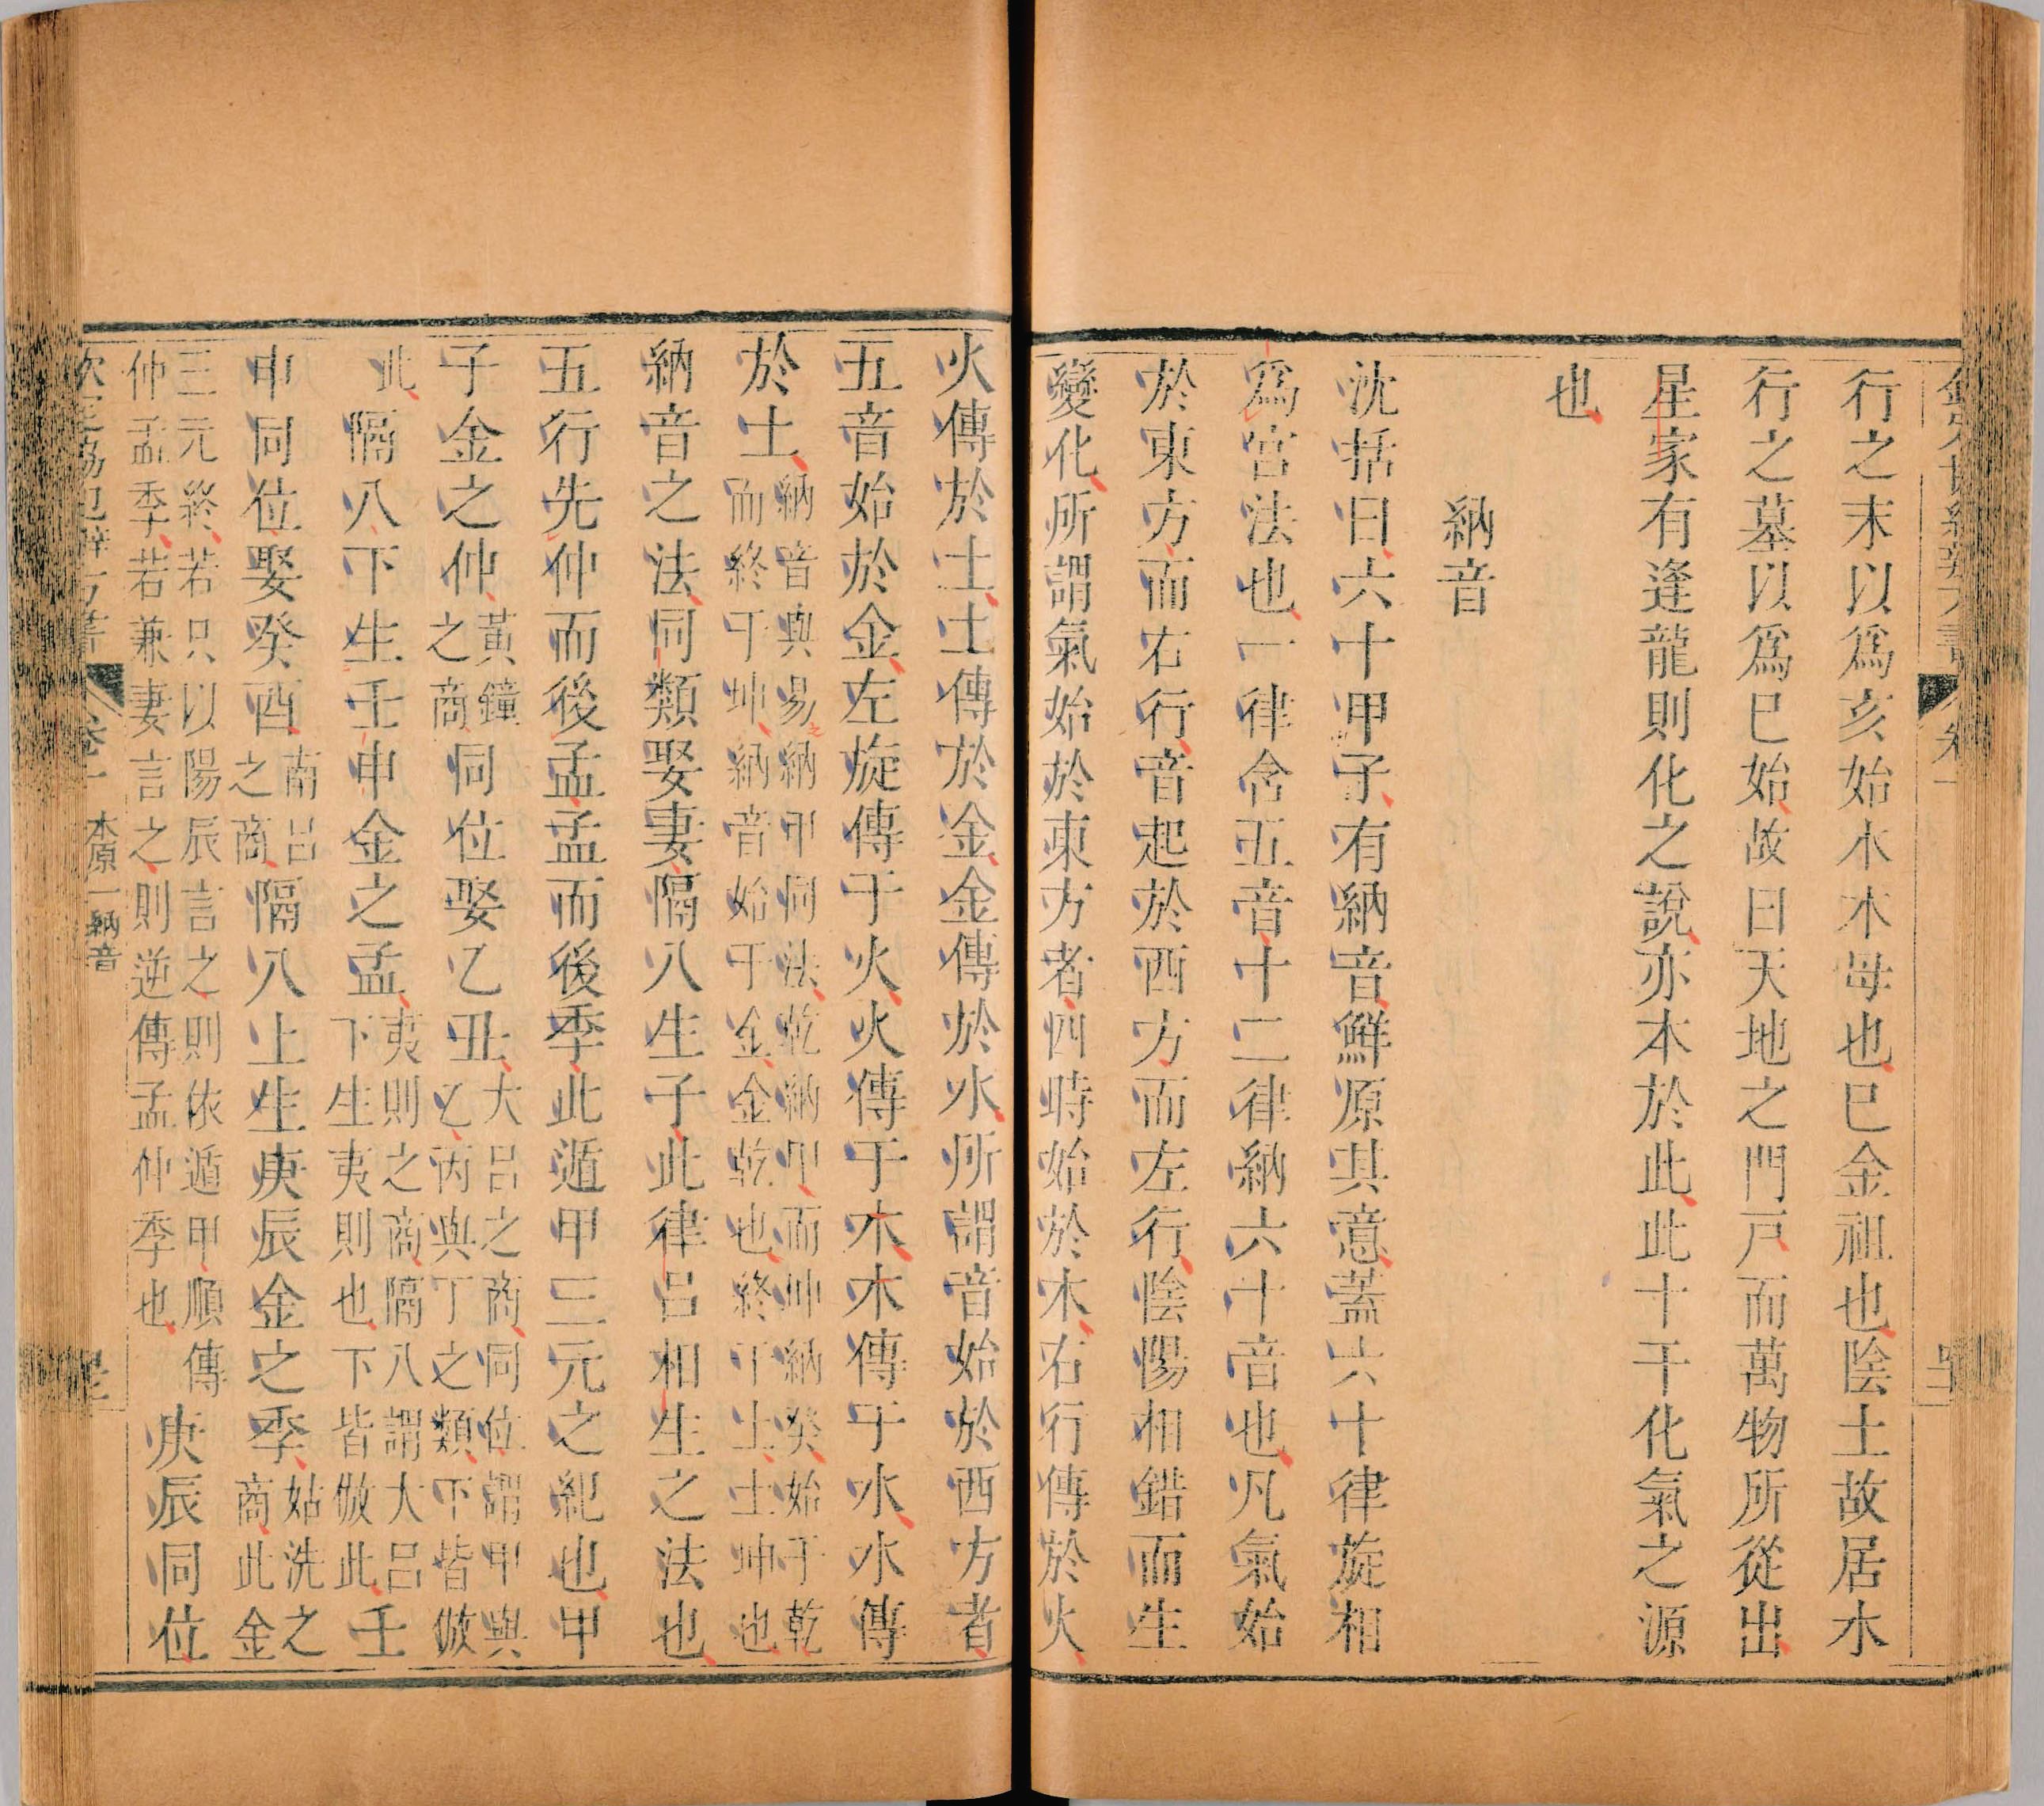 行之末以爲亥始水木母也巳金祖也陰土故居水
行之墓以爲巳始故曰天地之門戸而萬物所從出
星家有逢龍則化之說亦本於此此十干化氣之源
也
納音
沈括曰六十甲子有納音鮮原其意蓋六十律旋相
爲宮法也一律含五音十二律納六十音也凡氣始
於東方而右行音起於西方而左行陰陽相錯而生
變化所謂氣始於東方者四時始於木右行傳於火
火傳於土土傳於金金傳於水所謂音始於西方者
五音始於金左旋傳于火火傳于木木傳于水水傳
於土納音與易納甲同法乾納甲而坤納癸始于乾而終于坤納音始于金金乾也終于土土坤也
納音之法同類娶妻隔八生子此律呂相生之法也
五行先仲而後孟孟而後季此遁甲三元之紀也甲
子金之仲黃鐘之商同位娶乙丑大呂之商同位謂甲與乙丙與丁之類下皆倣
此隔八下生壬申金之孟夷則之商隔八謂大呂下生夷則也下皆倣此壬
申同位娶癸酉南呂之商隔八上生庚辰金之季姑洗之商此金
三元終若只以陽辰言之則依遁甲順傳仲孟季若兼妻言之則逆傳孟仲季也庚辰同位
本原一 納音